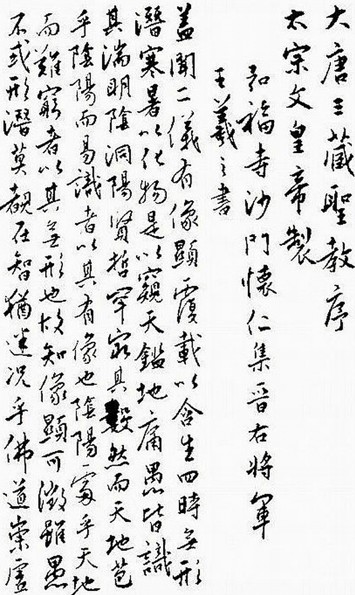 大唐三藏聖教序
太宗文皇帝製
弘福寺沙門懷仁集晉右將軍
王羲之書
蓋聞二儀有像顯覆載以含生四時無形
潛寒暑以化物是以窺天鑑地庸愚皆識
其端明陰洞陽賢哲罕窮其數然而天地苞
乎陰陽而易識者以其有像也陰陽處乎天地
而難窮者以其無形也故知像顯可徵雖愚
不惑形潛莫覩在智猶迷況乎佛道崇虛